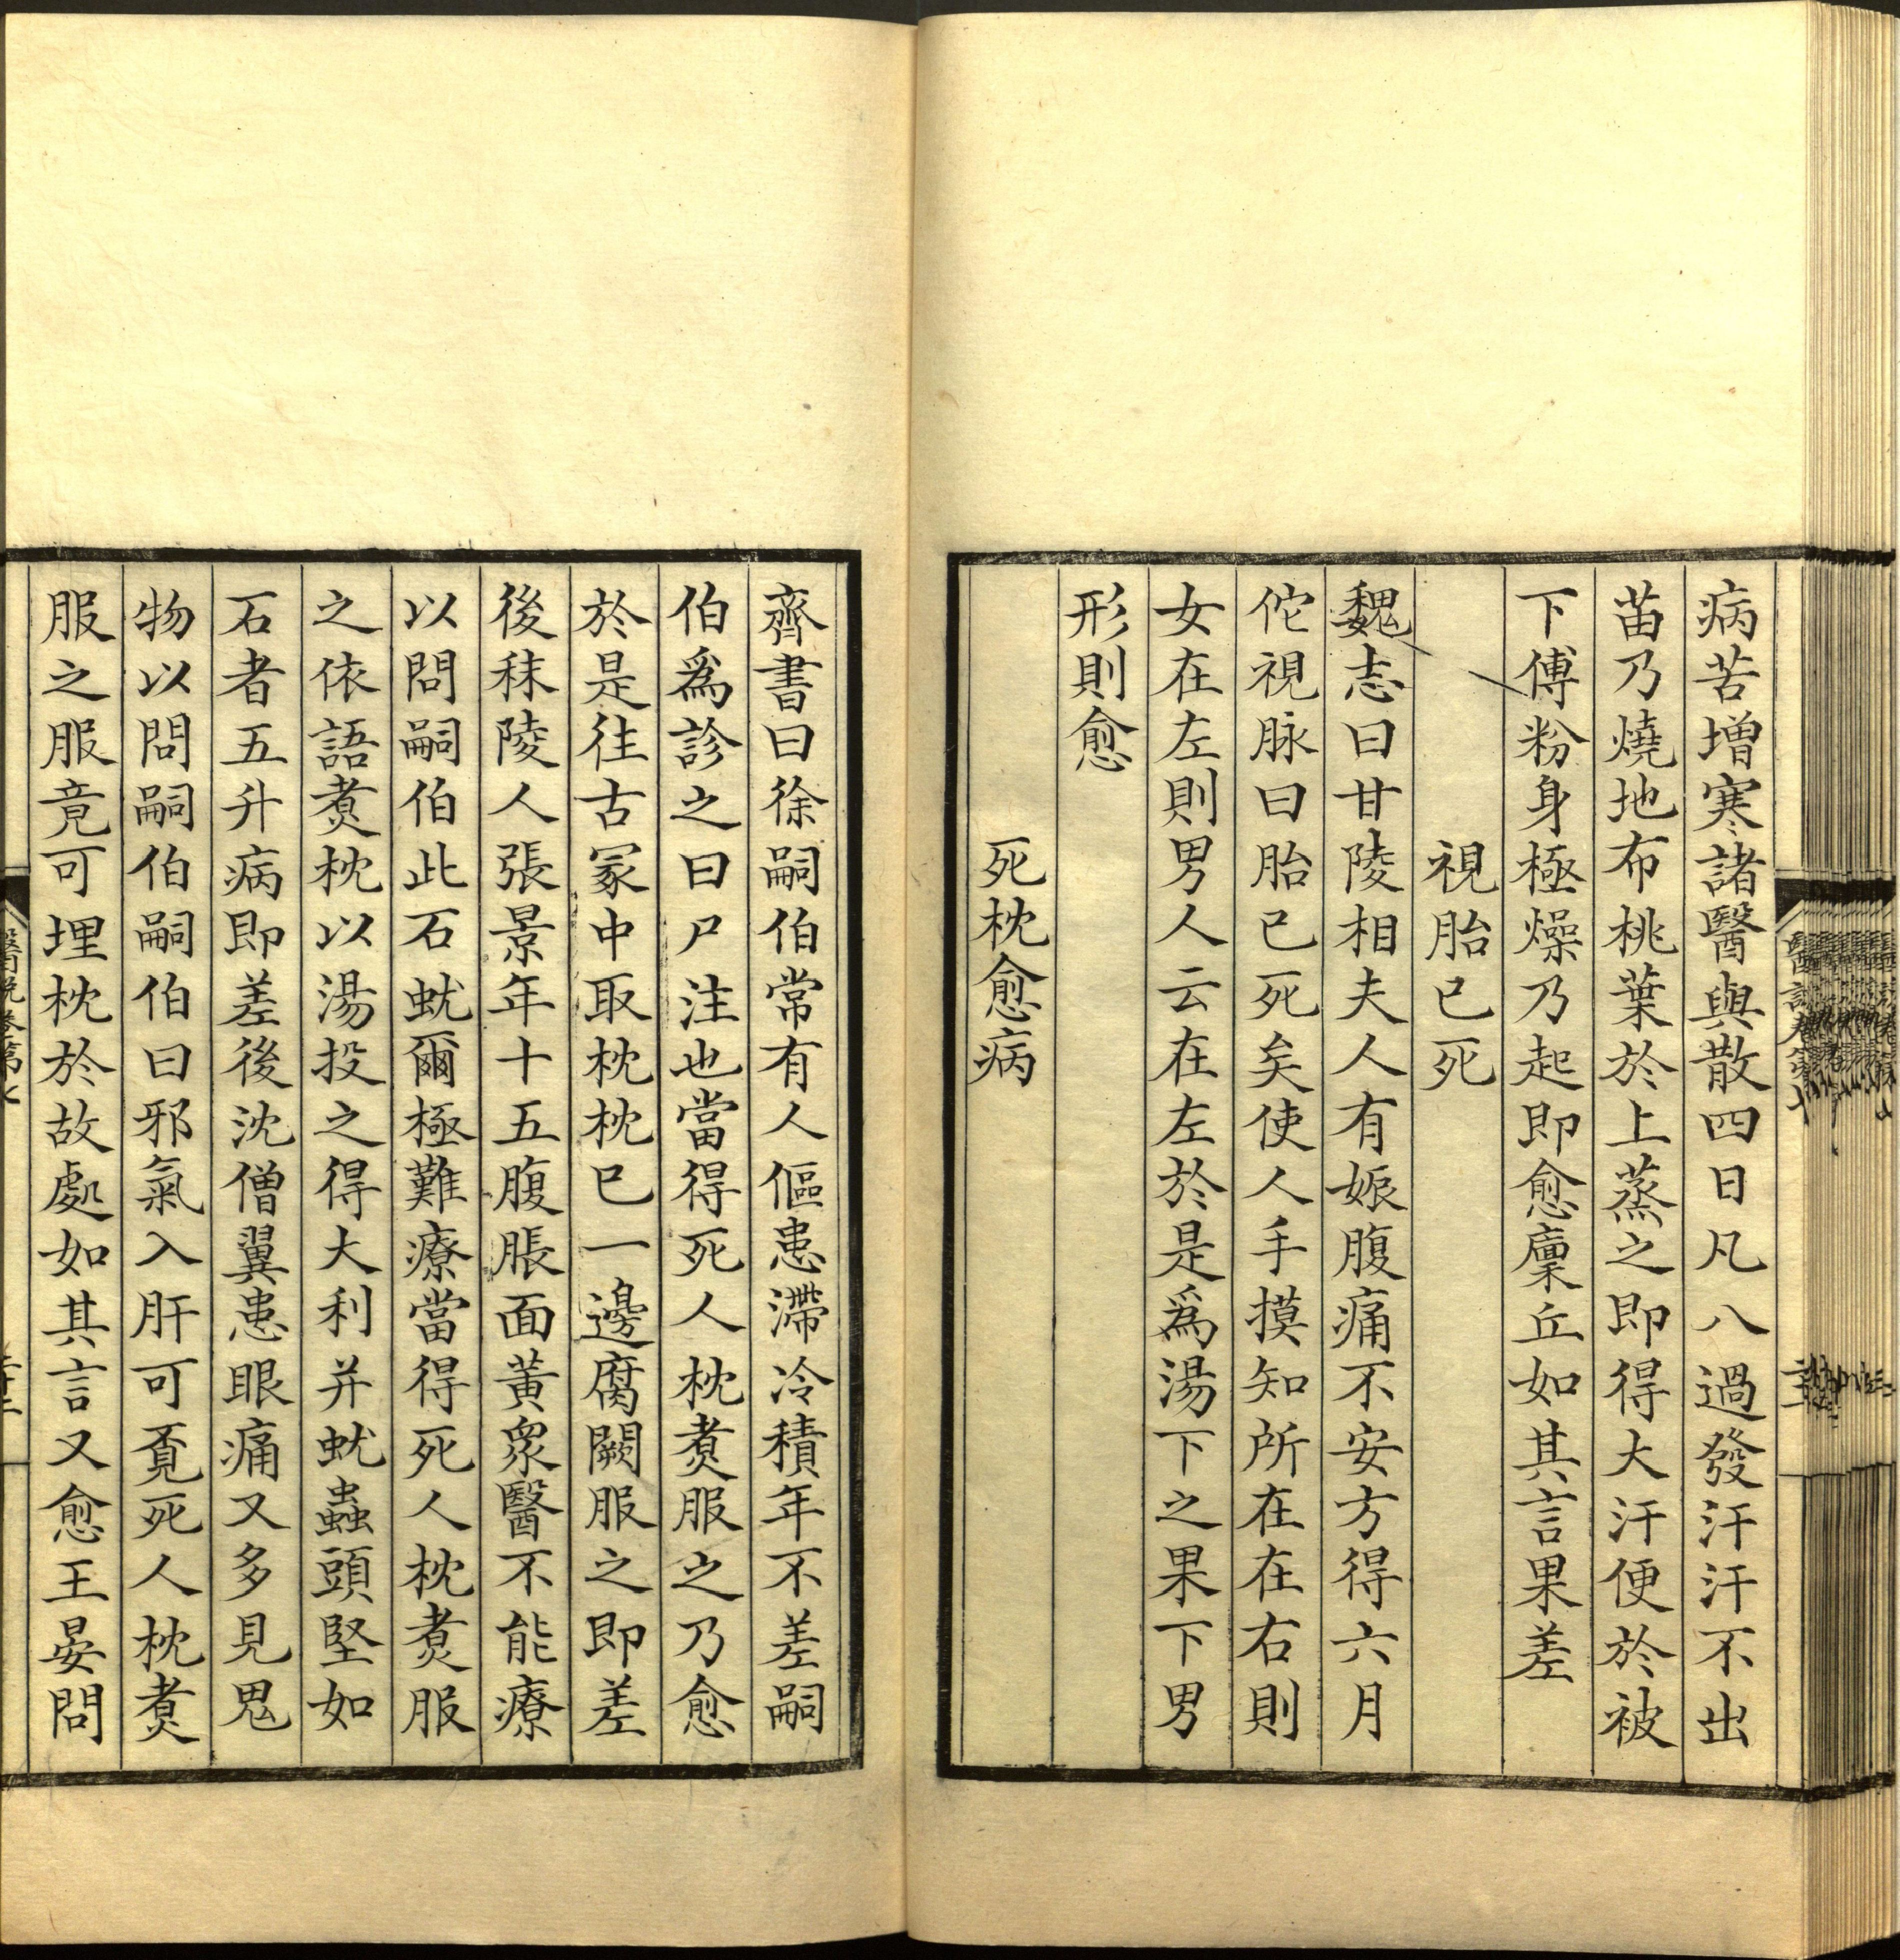 病苦增寒諸醫與散四日凡八過發汗汗不出
苗乃燒地布桃葉於上蒸之即得大汗便於被
下傅粉身極燥乃起即愈廩丘如其言果差
視胎已死
魏志曰甘陵相夫人有娠腹痛不安方得六月
佗視脉曰胎已死矣使人手摸知所在在右則
女在左則男人云在左於是爲湯下之果下男
形則愈
死枕愈病
齊書曰徐嗣伯常有人傴患滯冷積年不差嗣
伯爲診之曰尸注也當得死人枕煑服之乃愈
於是往古冢中取枕枕已一邊腐闕服之即差
後秣陵人張景年十五腹脹面黃衆醫不能療
以問嗣伯此石蚘爾極難療當得死人枕煑服
之依語煑枕以湯投之得大利并蚘蟲頭堅如
石者五升病即差後沈僧翼患眼痛又多見鬼
物以問嗣伯嗣伯曰邪氣入肝可覔死人枕煑
服之服竟可埋枕於故處如其言又愈王晏問